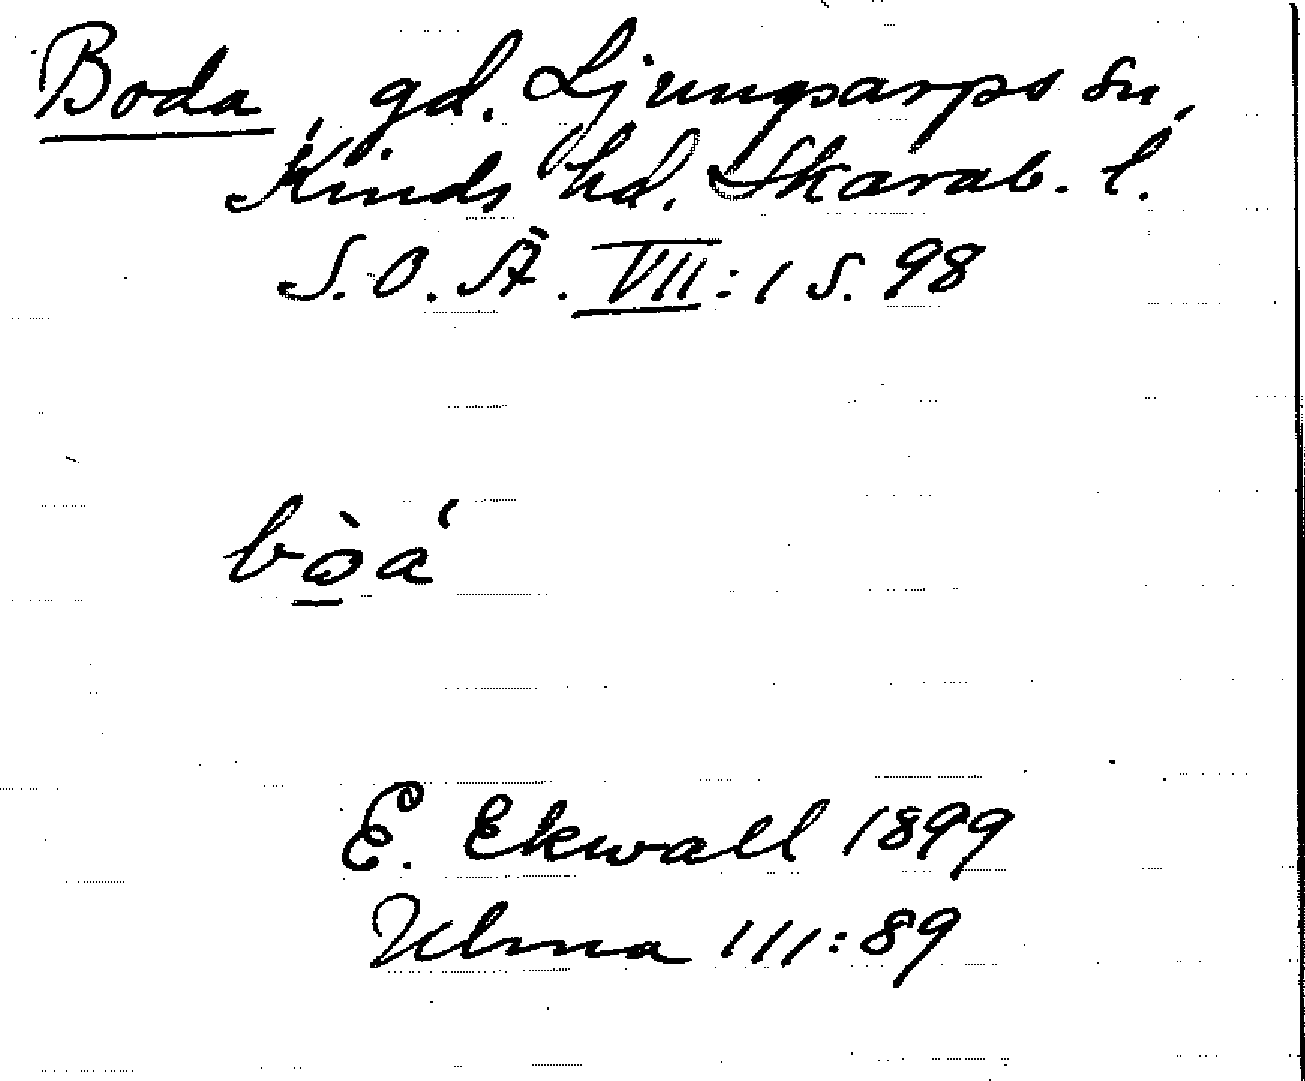 Boda, gd. Ljungsarps sn,
Kinds hd. Skarab. l.
S.O.Ä. VII:1 s. 98
bò̱a´
E. Ekwall 1899
Ulma 111:89